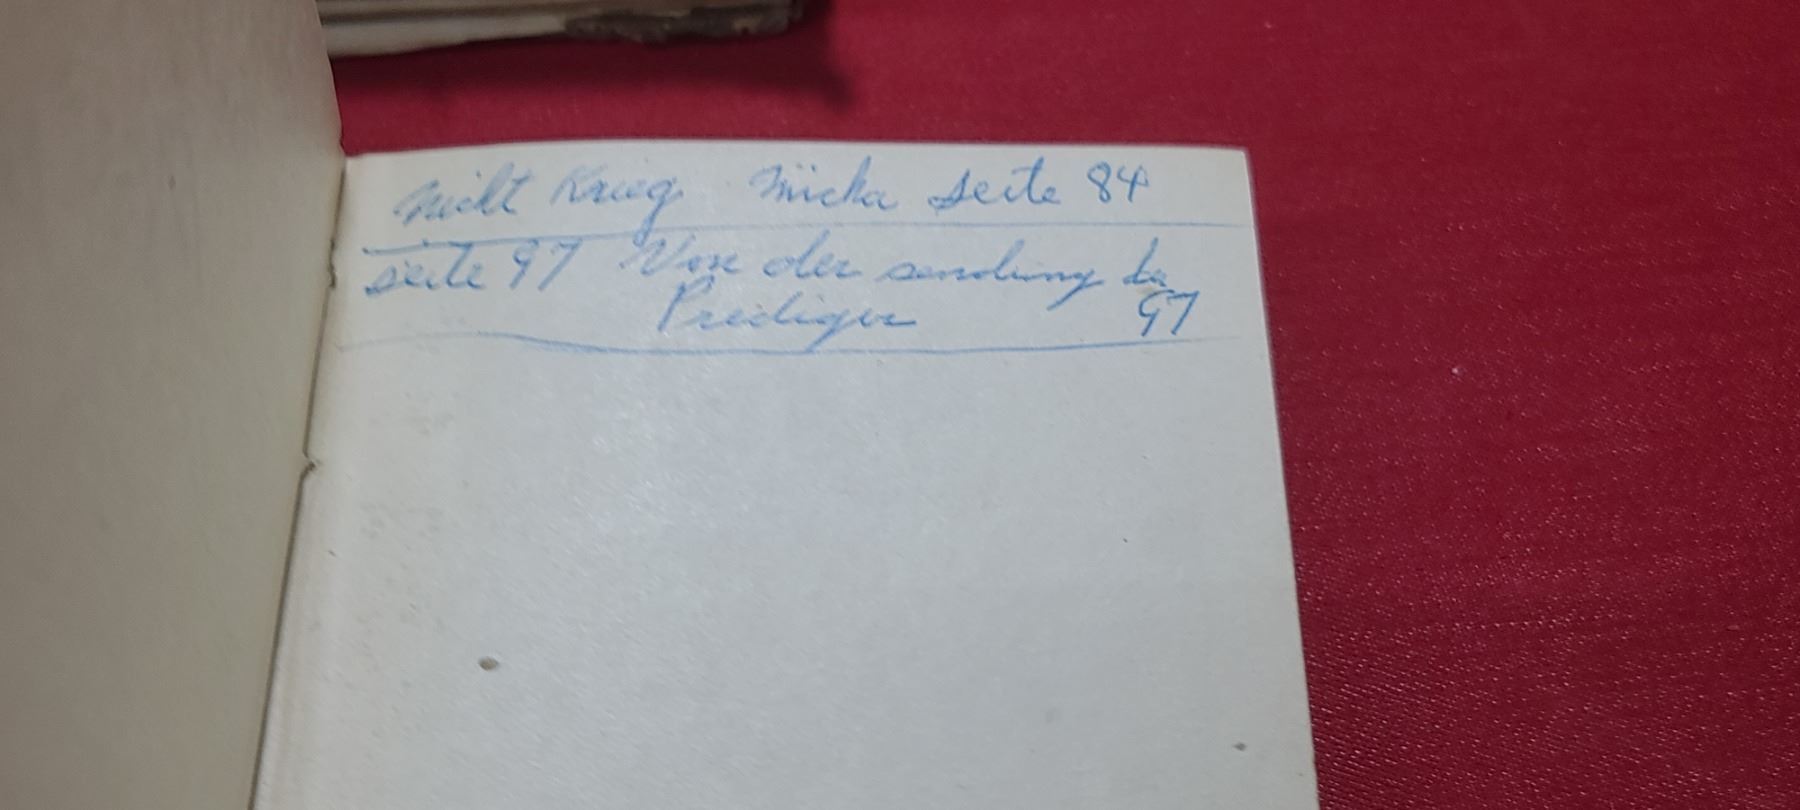 nicht Krieg Micha seite 84
seite 97 Von der sendung der
Prediger 97